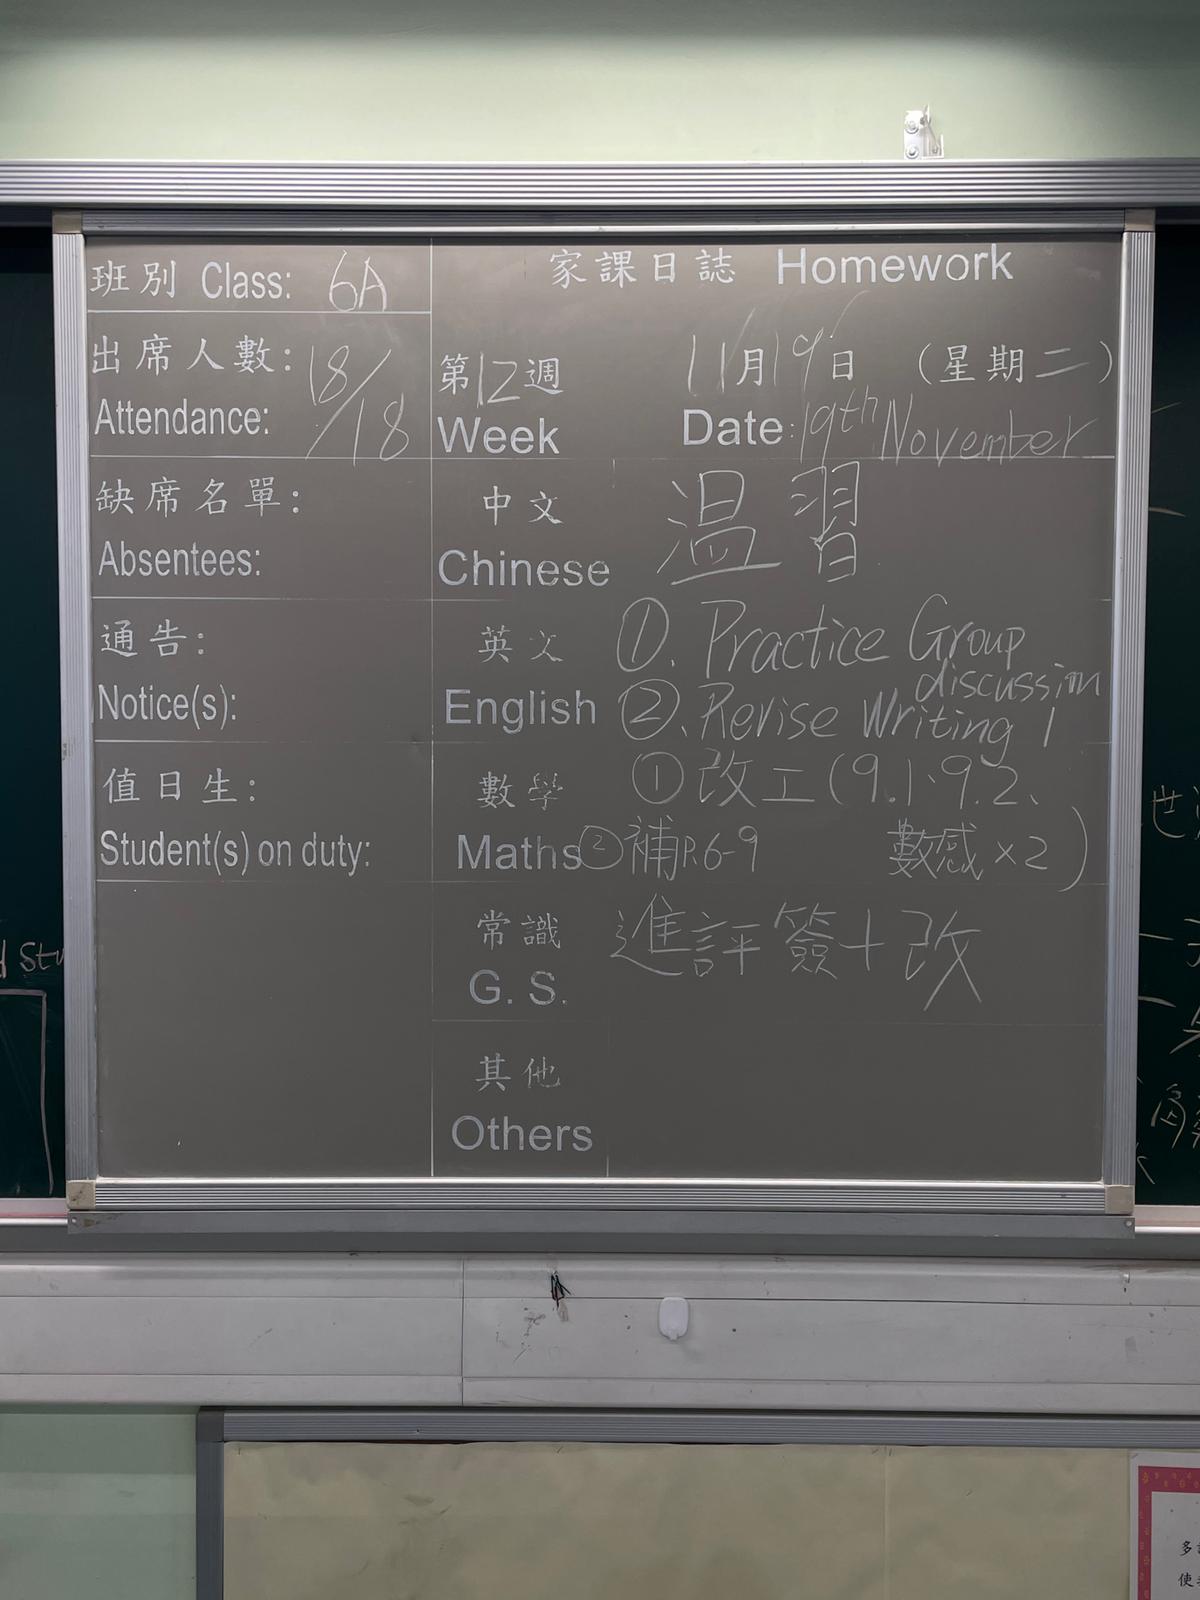 班別 Class: 6A
出席人數: 18/18
Attendance:
缺席名單:
Absentees:
通告:
Notice(s):
值日生:
Student(s) on duty:
家課日誌 Homework
第12週 11月19日 (星期二)
Week Date: 19th November
中文 溫習
Chinese
英文 ①. Practice Group discussion
English ②. Revise Writing 1
數學 ①改工(9.1、9.2、
Maths ②補P.6-9 數感×2)
常識 進評簽+改
G. S.
其他
Others